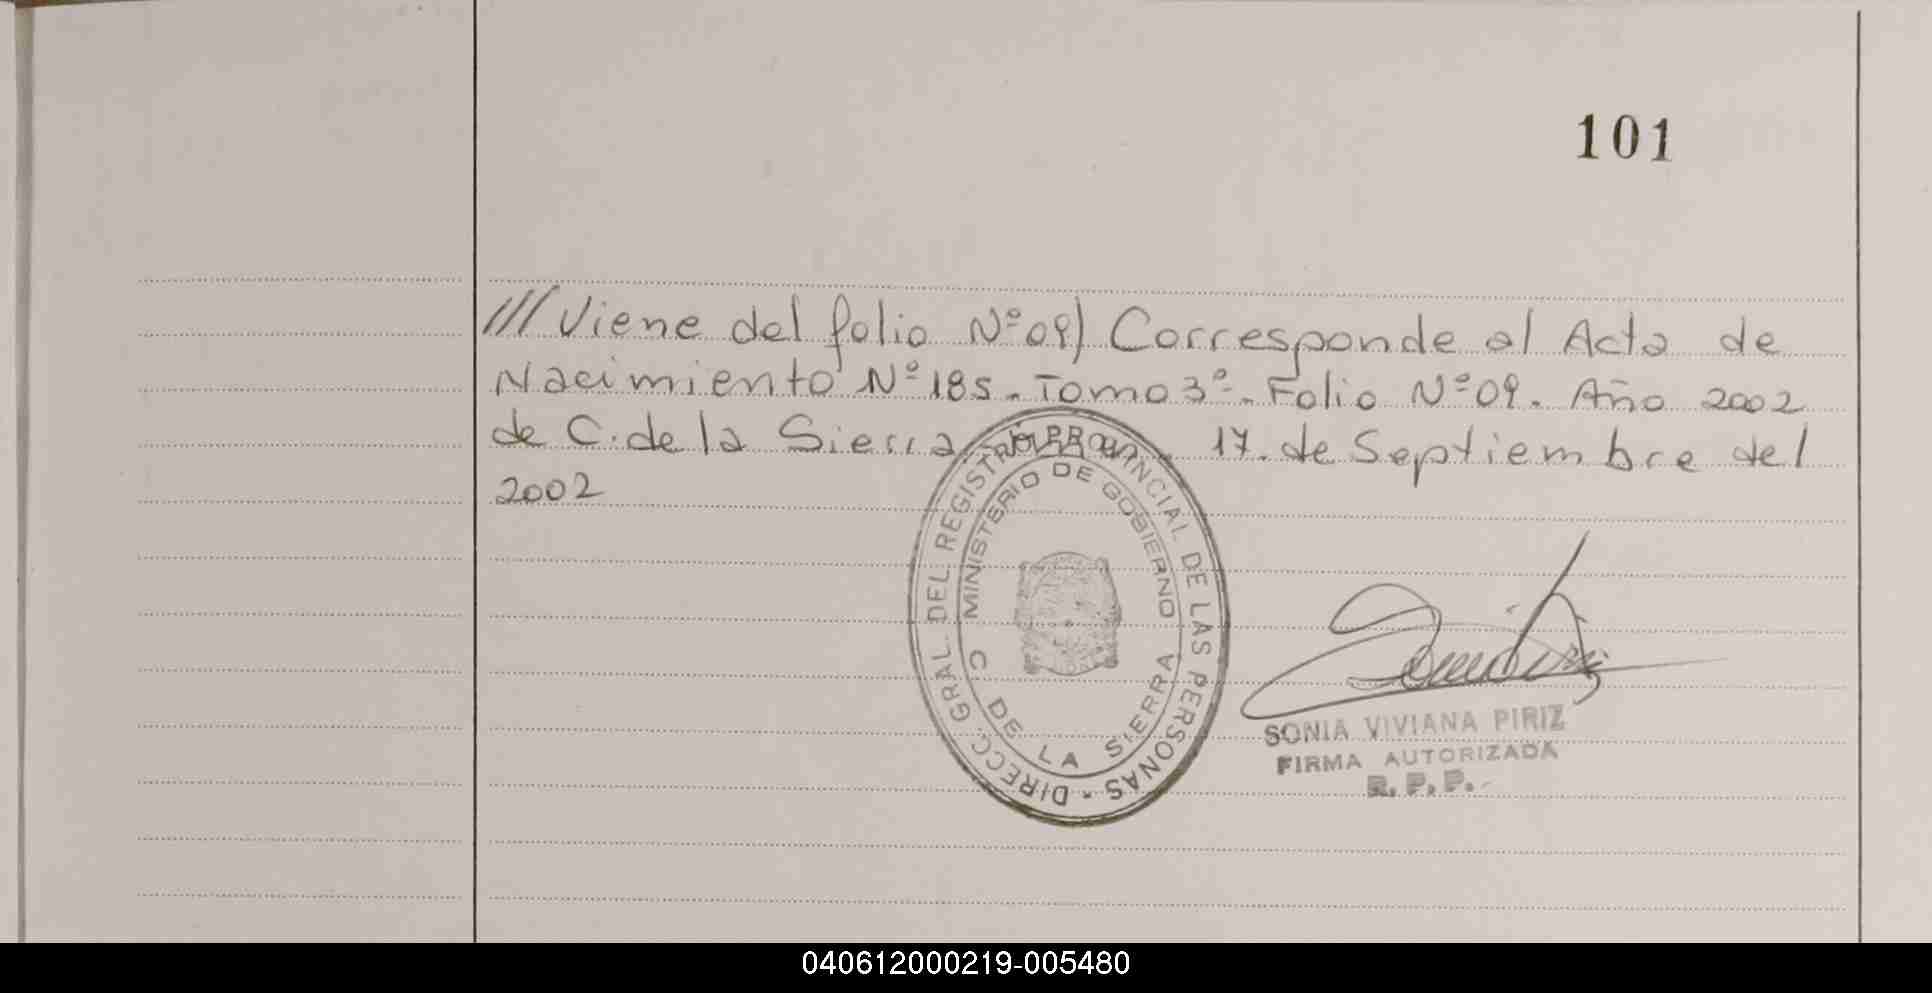 101
/// Viene del folio Nº 09) Corresponde al Acta de
Nacimiento Nº 185. Tomo 3º. Folio Nº 09. Año 2002
de C. de la Sierra 17. de Septiembre del
2002
DIRECC. GRAL. DEL REGISTRO PROVINCIAL DE LAS PERSONAS -
MINISTERIO DE GOBIERNO
C. DE LA SIERRA
SONIA VIVIANA PIRIZ
FIRMA AUTORIZADA
R.P.P.-
040612000219-005480